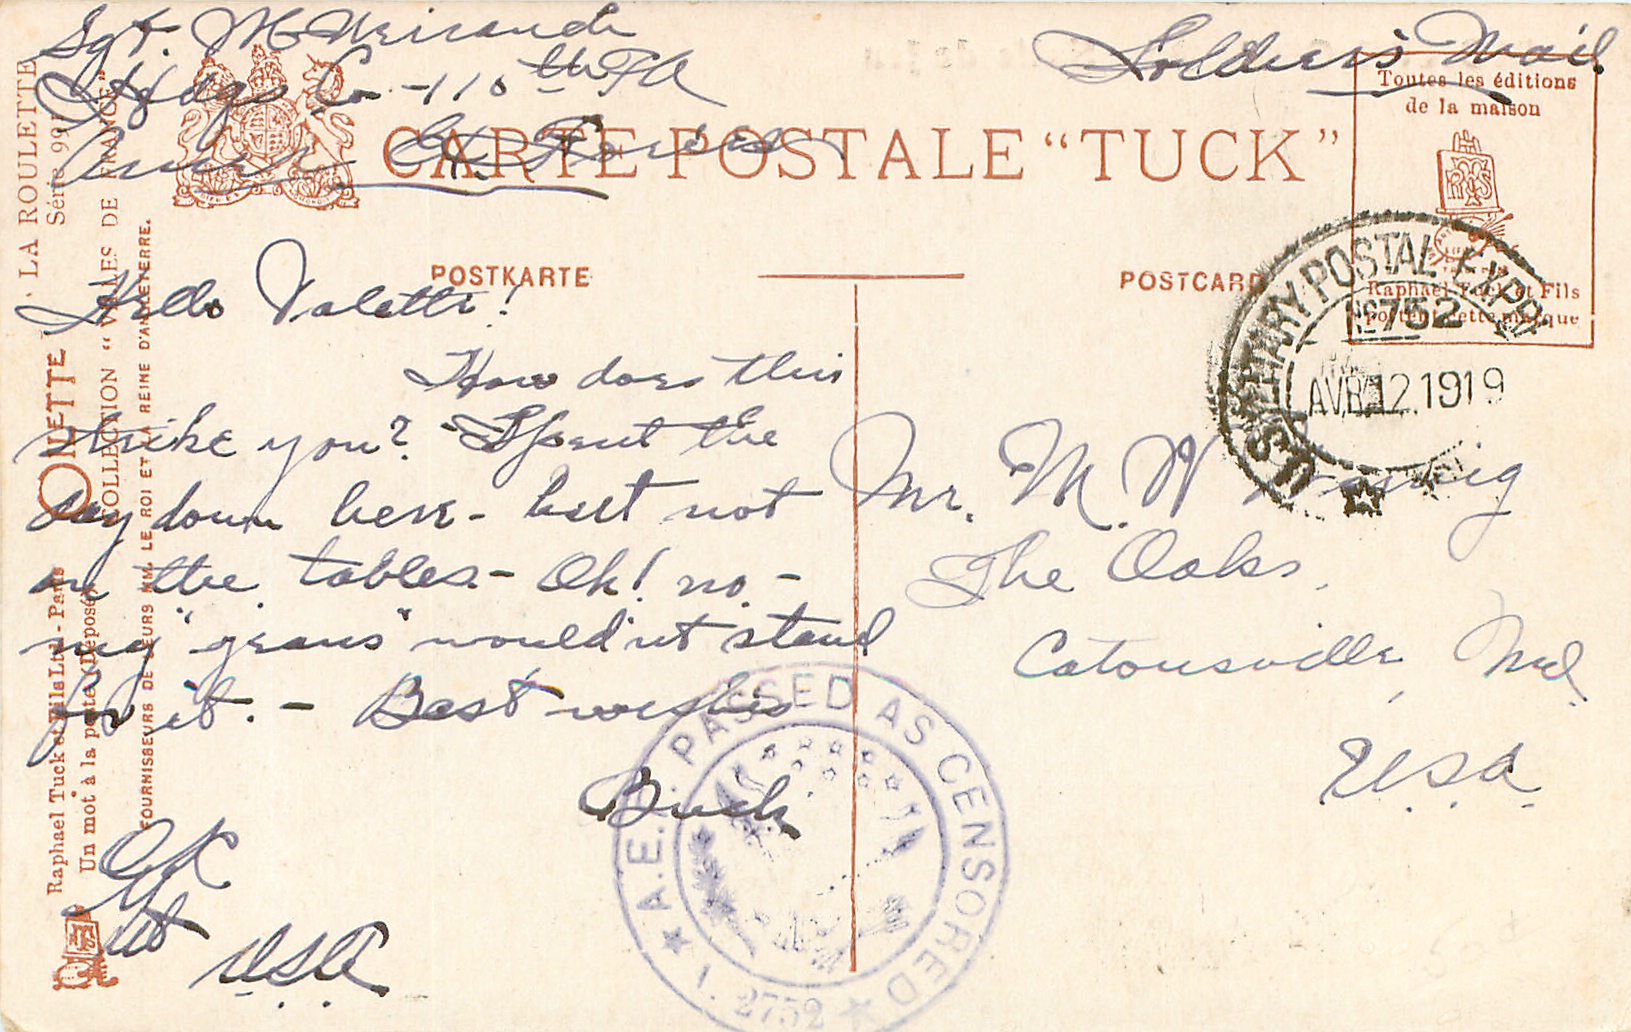 Sgt. M Weirauch
Hdqs Co - 110th FA
Amer. Ex. Forces
Soldier's Mail
CARTE POSTALE "TUCK"
Toutes les éditions
de la maison
Raphael Tuck et Fils
portent cette marque
POSTKARTE
POSTCARD
U.S. MILITARY POSTAL EXP.
No 752
AVR 12 1919
Hello Valette!
How does this
strike you? Spent the
day down here - but not
on the tables - Oh! no -
my "jeans" wouldn't stand
for it. - Best wishes
Buck
OK
USA
Mr. M. W
The Oaks,
Catonsville, Md
U.S.A.
A.E.F. PASSED AS CENSORED
2752
"LA ROULETTE"
Série 991
COLLECTION "VILLES DE FRANCE"
OILETTE
FOURNISSEURS DE LEURS MM. LE ROI ET LA REINE D'ANGLETERRE.
Raphael Tuck et Fils Ltd - Paris
Un mot à la poste (Déposé)